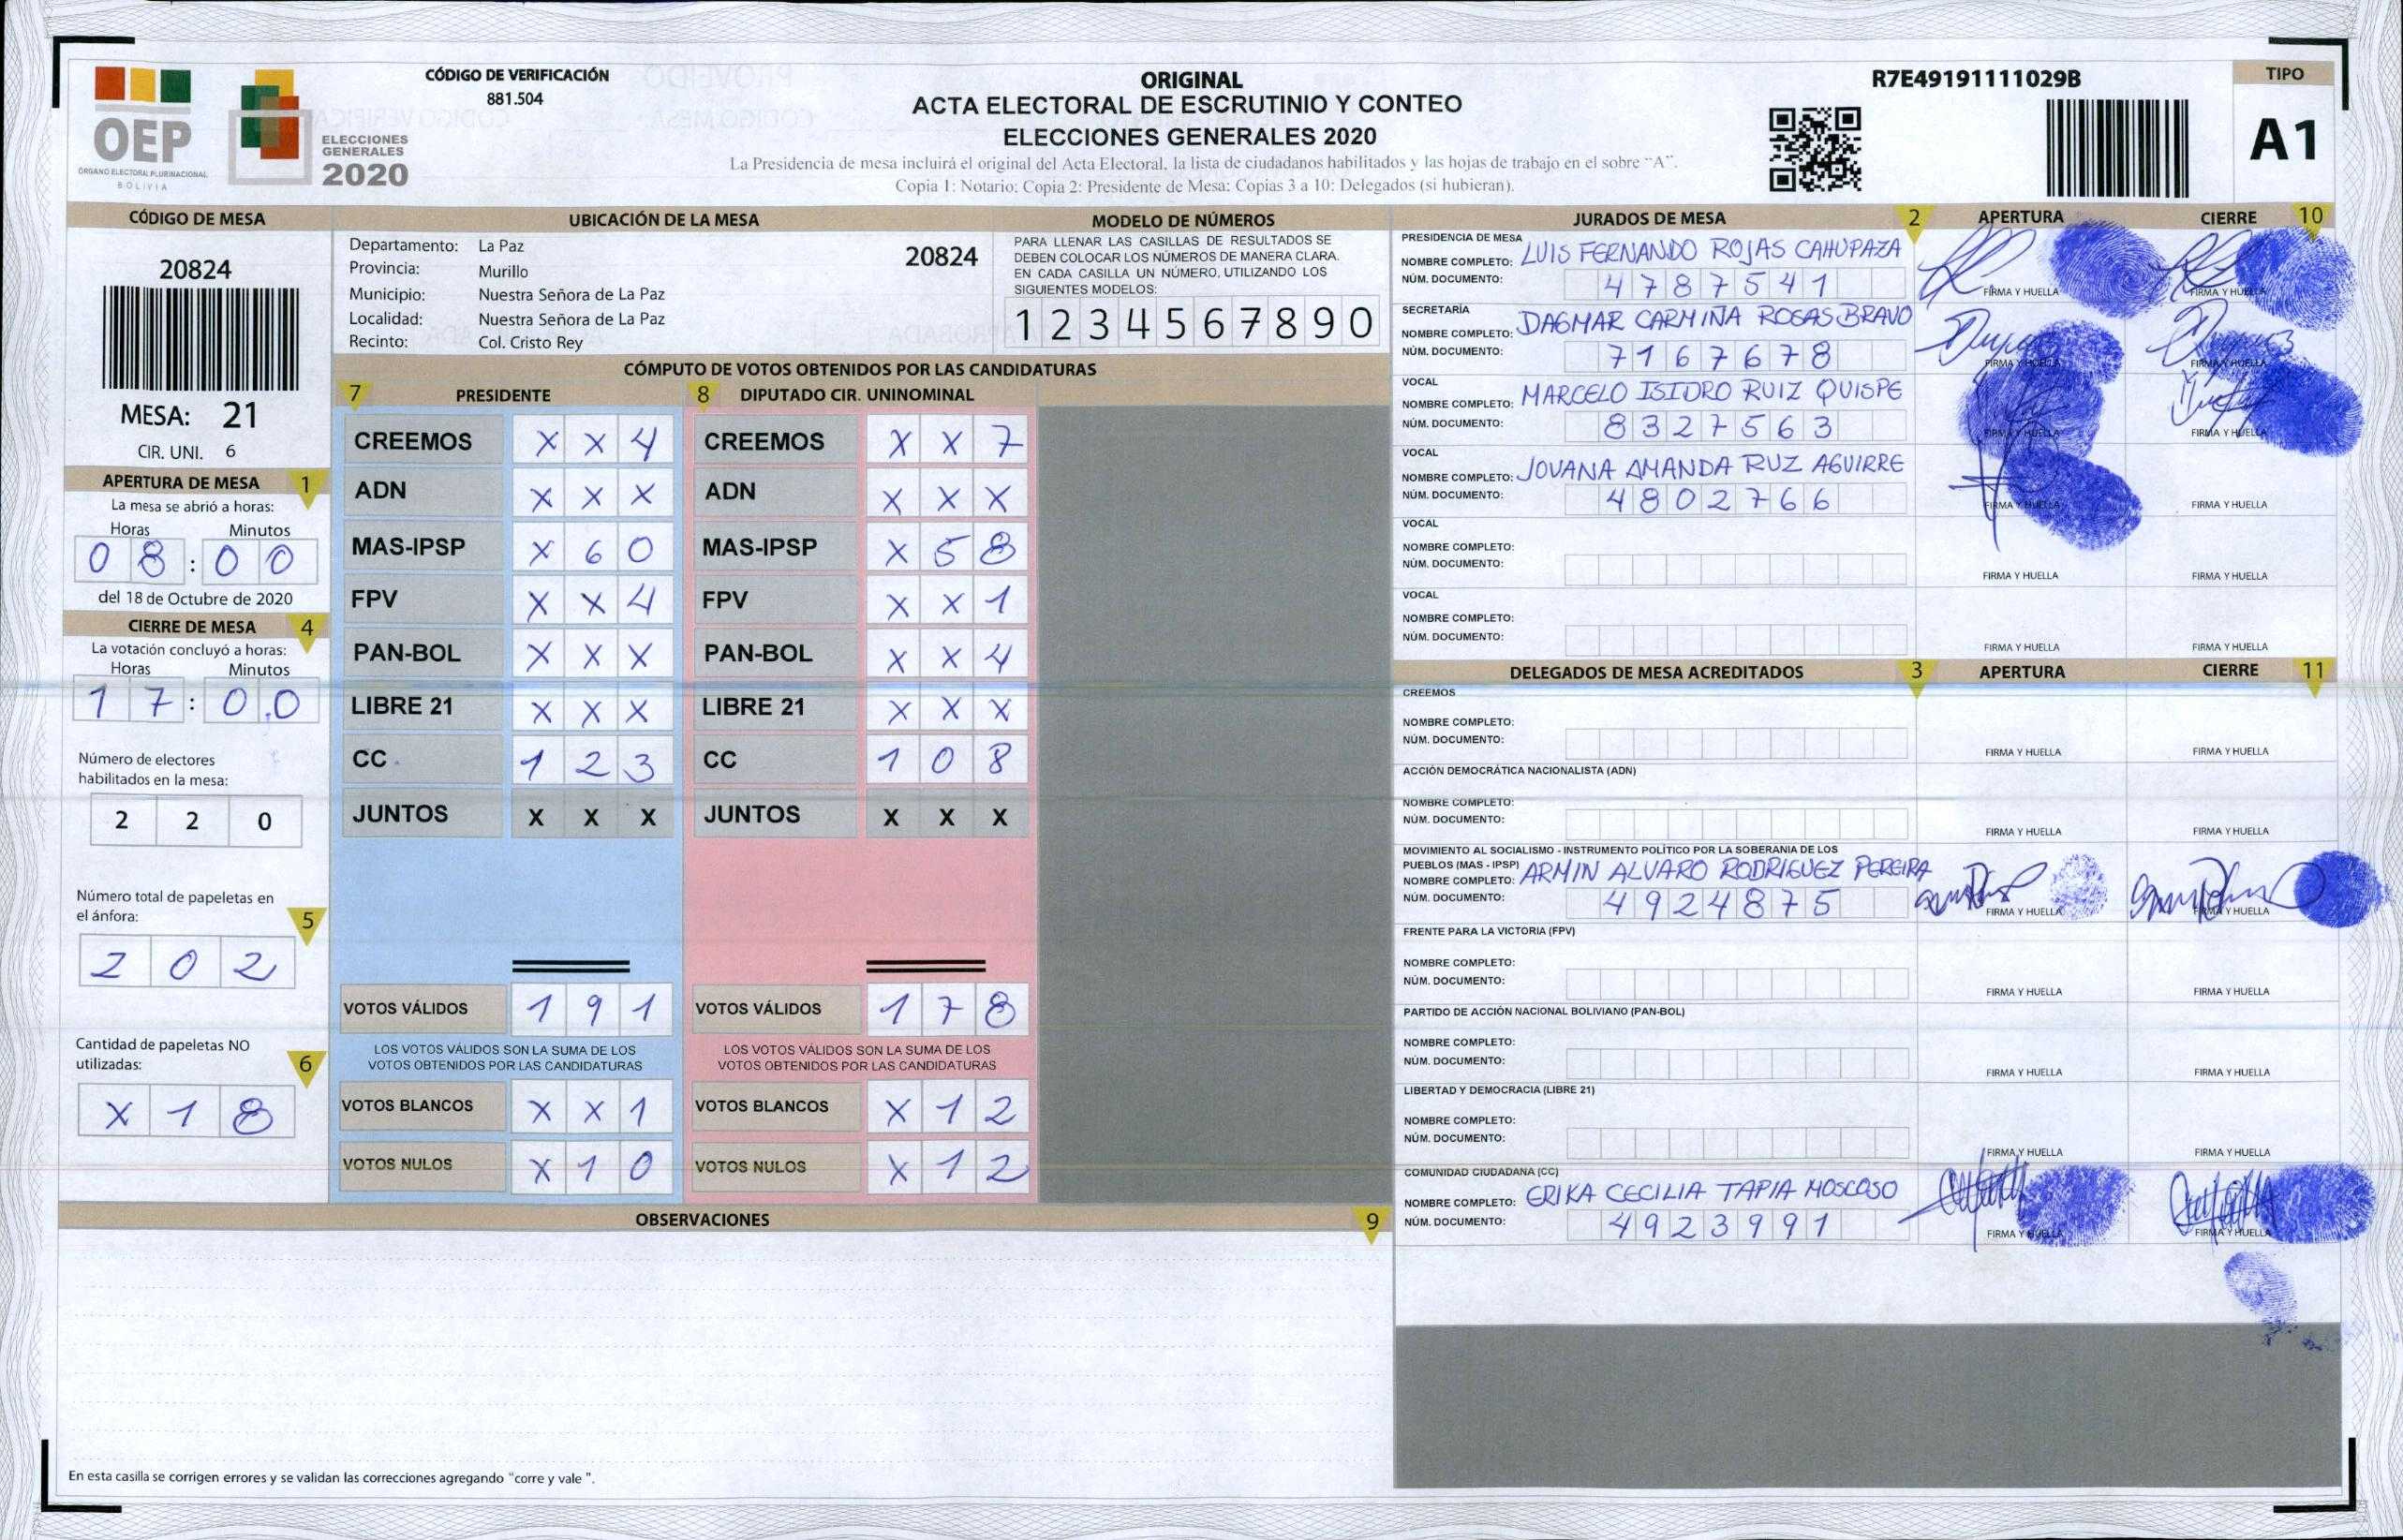 OEP
ÓRGANO ELECTORAL PLURINACIONAL
BOLIVIA
ELECCIONES
GENERALES
2020
CÓDIGO DE VERIFICACIÓN
881.504
ORIGINAL
ACTA ELECTORAL DE ESCRUTINIO Y CONTEO
ELECCIONES GENERALES 2020
La Presidencia de mesa incluirá el original del Acta Electoral, la lista de ciudadanos habilitados y las hojas de trabajo en el sobre "A".
Copia 1: Notario; Copia 2: Presidente de Mesa; Copias 3 a 10: Delegados (si hubieran).
R7E49191111029B
TIPO
A1
CÓDIGO DE MESA
20824
MESA: 21
CIR. UNI. 6
APERTURA DE MESA 1
La mesa se abrió a horas:
Horas Minutos
08:00
del 18 de Octubre de 2020
CIERRE DE MESA 4
La votación concluyó a horas:
Horas Minutos
17:00
Número de electores
habilitados en la mesa:
2 2 0
Número total de papeletas en
el ánfora: 5
2 0 2
Cantidad de papeletas NO
utilizadas: 6
X 1 8
UBICACIÓN DE LA MESA
Departamento: La Paz 20824
Provincia: Murillo
Municipio: Nuestra Señora de La Paz
Localidad: Nuestra Señora de La Paz
Recinto: Col. Cristo Rey
MODELO DE NÚMEROS
PARA LLENAR LAS CASILLAS DE RESULTADOS SE
DEBEN COLOCAR LOS NÚMEROS DE MANERA CLARA.
EN CADA CASILLA UN NÚMERO, UTILIZANDO LOS
SIGUIENTES MODELOS:
1 2 3 4 5 6 7 8 9 0
CÓMPUTO DE VOTOS OBTENIDOS POR LAS CANDIDATURAS
7 PRESIDENTE 8 DIPUTADO CIR. UNINOMINAL
CREEMOS X X 4 CREEMOS X X 7
ADN X X X ADN X X X
MAS-IPSP X 6 0 MAS-IPSP X 5 8
FPV X X 4 FPV X X 1
PAN-BOL X X X PAN-BOL X X 4
LIBRE 21 X X X LIBRE 21 X X X
CC 1 2 3 CC 1 0 8
JUNTOS X X X JUNTOS X X X
VOTOS VÁLIDOS 1 9 1 VOTOS VÁLIDOS 1 7 8
LOS VOTOS VÁLIDOS SON LA SUMA DE LOS LOS VOTOS VÁLIDOS SON LA SUMA DE LOS
VOTOS OBTENIDOS POR LAS CANDIDATURAS VOTOS OBTENIDOS POR LAS CANDIDATURAS
VOTOS BLANCOS X X 1 VOTOS BLANCOS X 1 2
VOTOS NULOS X 1 0 VOTOS NULOS X 1 2
OBSERVACIONES 9
En esta casilla se corrigen errores y se validan las correcciones agregando "corre y vale ".
JURADOS DE MESA 2 APERTURA CIERRE 10
PRESIDENCIA DE MESA
NOMBRE COMPLETO: LUIS FERNANDO ROJAS CAHUPAZA
NÚM. DOCUMENTO: 4787541 FIRMA Y HUELLA FIRMA Y HUELLA
SECRETARÍA
NOMBRE COMPLETO: DAGMAR CARMIÑA ROSAS BRAVO
NÚM. DOCUMENTO: 7167678 FIRMA Y HUELLA FIRMA Y HUELLA
VOCAL
NOMBRE COMPLETO: MARCELO ISIDRO RUIZ QUISPE
NÚM. DOCUMENTO: 8327563 FIRMA Y HUELLA FIRMA Y HUELLA
VOCAL
NOMBRE COMPLETO: JOVANA AMANDA RUZ AGUIRRE
NÚM. DOCUMENTO: 4802766 FIRMA Y HUELLA FIRMA Y HUELLA
VOCAL
NOMBRE COMPLETO:
NÚM. DOCUMENTO: FIRMA Y HUELLA FIRMA Y HUELLA
VOCAL
NOMBRE COMPLETO:
NÚM. DOCUMENTO: FIRMA Y HUELLA FIRMA Y HUELLA
DELEGADOS DE MESA ACREDITADOS 3 APERTURA CIERRE 11
CREEMOS
NOMBRE COMPLETO:
NÚM. DOCUMENTO: FIRMA Y HUELLA FIRMA Y HUELLA
ACCIÓN DEMOCRÁTICA NACIONALISTA (ADN)
NOMBRE COMPLETO:
NÚM. DOCUMENTO: FIRMA Y HUELLA FIRMA Y HUELLA
MOVIMIENTO AL SOCIALISMO - INSTRUMENTO POLÍTICO POR LA SOBERANIA DE LOS
PUEBLOS (MAS - IPSP)
NOMBRE COMPLETO: ARMIN ALVARO RODRIGUEZ PEREIRA
NÚM. DOCUMENTO: 4924875 FIRMA Y HUELLA FIRMA Y HUELLA
FRENTE PARA LA VICTORIA (FPV)
NOMBRE COMPLETO:
NÚM. DOCUMENTO: FIRMA Y HUELLA FIRMA Y HUELLA
PARTIDO DE ACCIÓN NACIONAL BOLIVIANO (PAN-BOL)
NOMBRE COMPLETO:
NÚM. DOCUMENTO: FIRMA Y HUELLA FIRMA Y HUELLA
LIBERTAD Y DEMOCRACIA (LIBRE 21)
NOMBRE COMPLETO:
NÚM. DOCUMENTO: FIRMA Y HUELLA FIRMA Y HUELLA
COMUNIDAD CIUDADANA (CC)
NOMBRE COMPLETO: ERIKA CECILIA TAPIA MOSCOSO
NÚM. DOCUMENTO: 4923991 FIRMA Y HUELLA FIRMA Y HUELLA